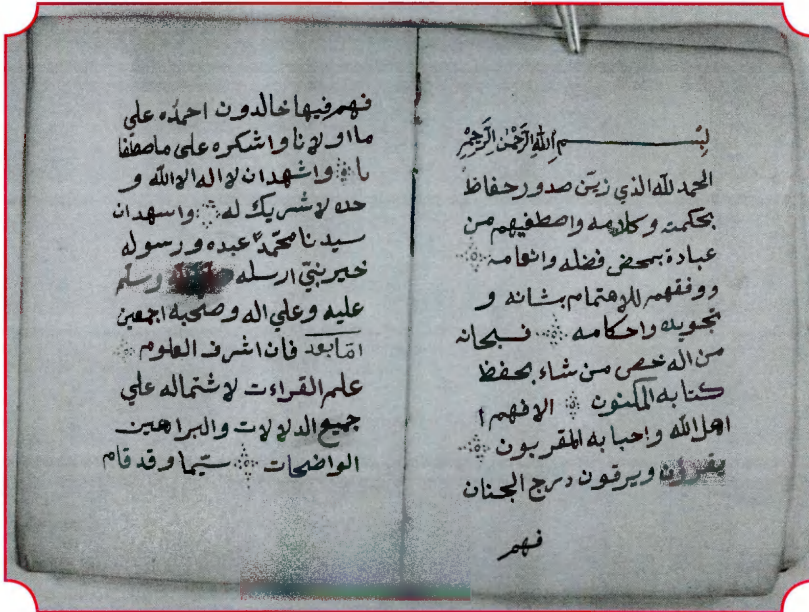 بِسْمِ اللهِ الرَّحْمٰنِ الرَّحِيْمِ
الحمد لله الذي زيّن صدور حفاظ
بحكمته وكلامه واصطفيهم من
عبادة بمحض فضله وانعامه
ووفقهم للاهتمام بشانه و
تجويده واحكامه فسبحانه
من اله خص من شاء بحفظ
كتابه المكنون الا فهم ا
اهل الله واحبا به المقربون
يقرؤن ويرقون درج الجنان
فهم
فهم فيها خالدون احمدُه علي
ما اولانا واشكره على ما صطفا
نا واشهد ان لا اله الا الله و
حده لا شريك له واسهد ان
سيدنا محمّداً عبده ورسوله
خير نبيّ ارسله وسلم
عليه وعلي اله وصحبه اجمعين
امّا بعد فان اشرف العلوم
علم القراءت لاشتماله علي
جميع الدلالات والبراهين
الواضحات سيّما وقد قام